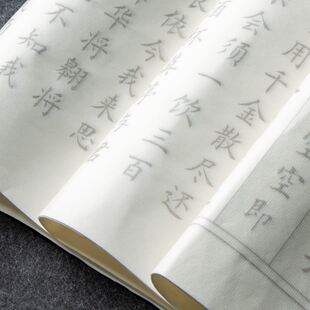 空空即
用千金散尽还
会须一饮三百
依今我来思
华将翱将
不知我